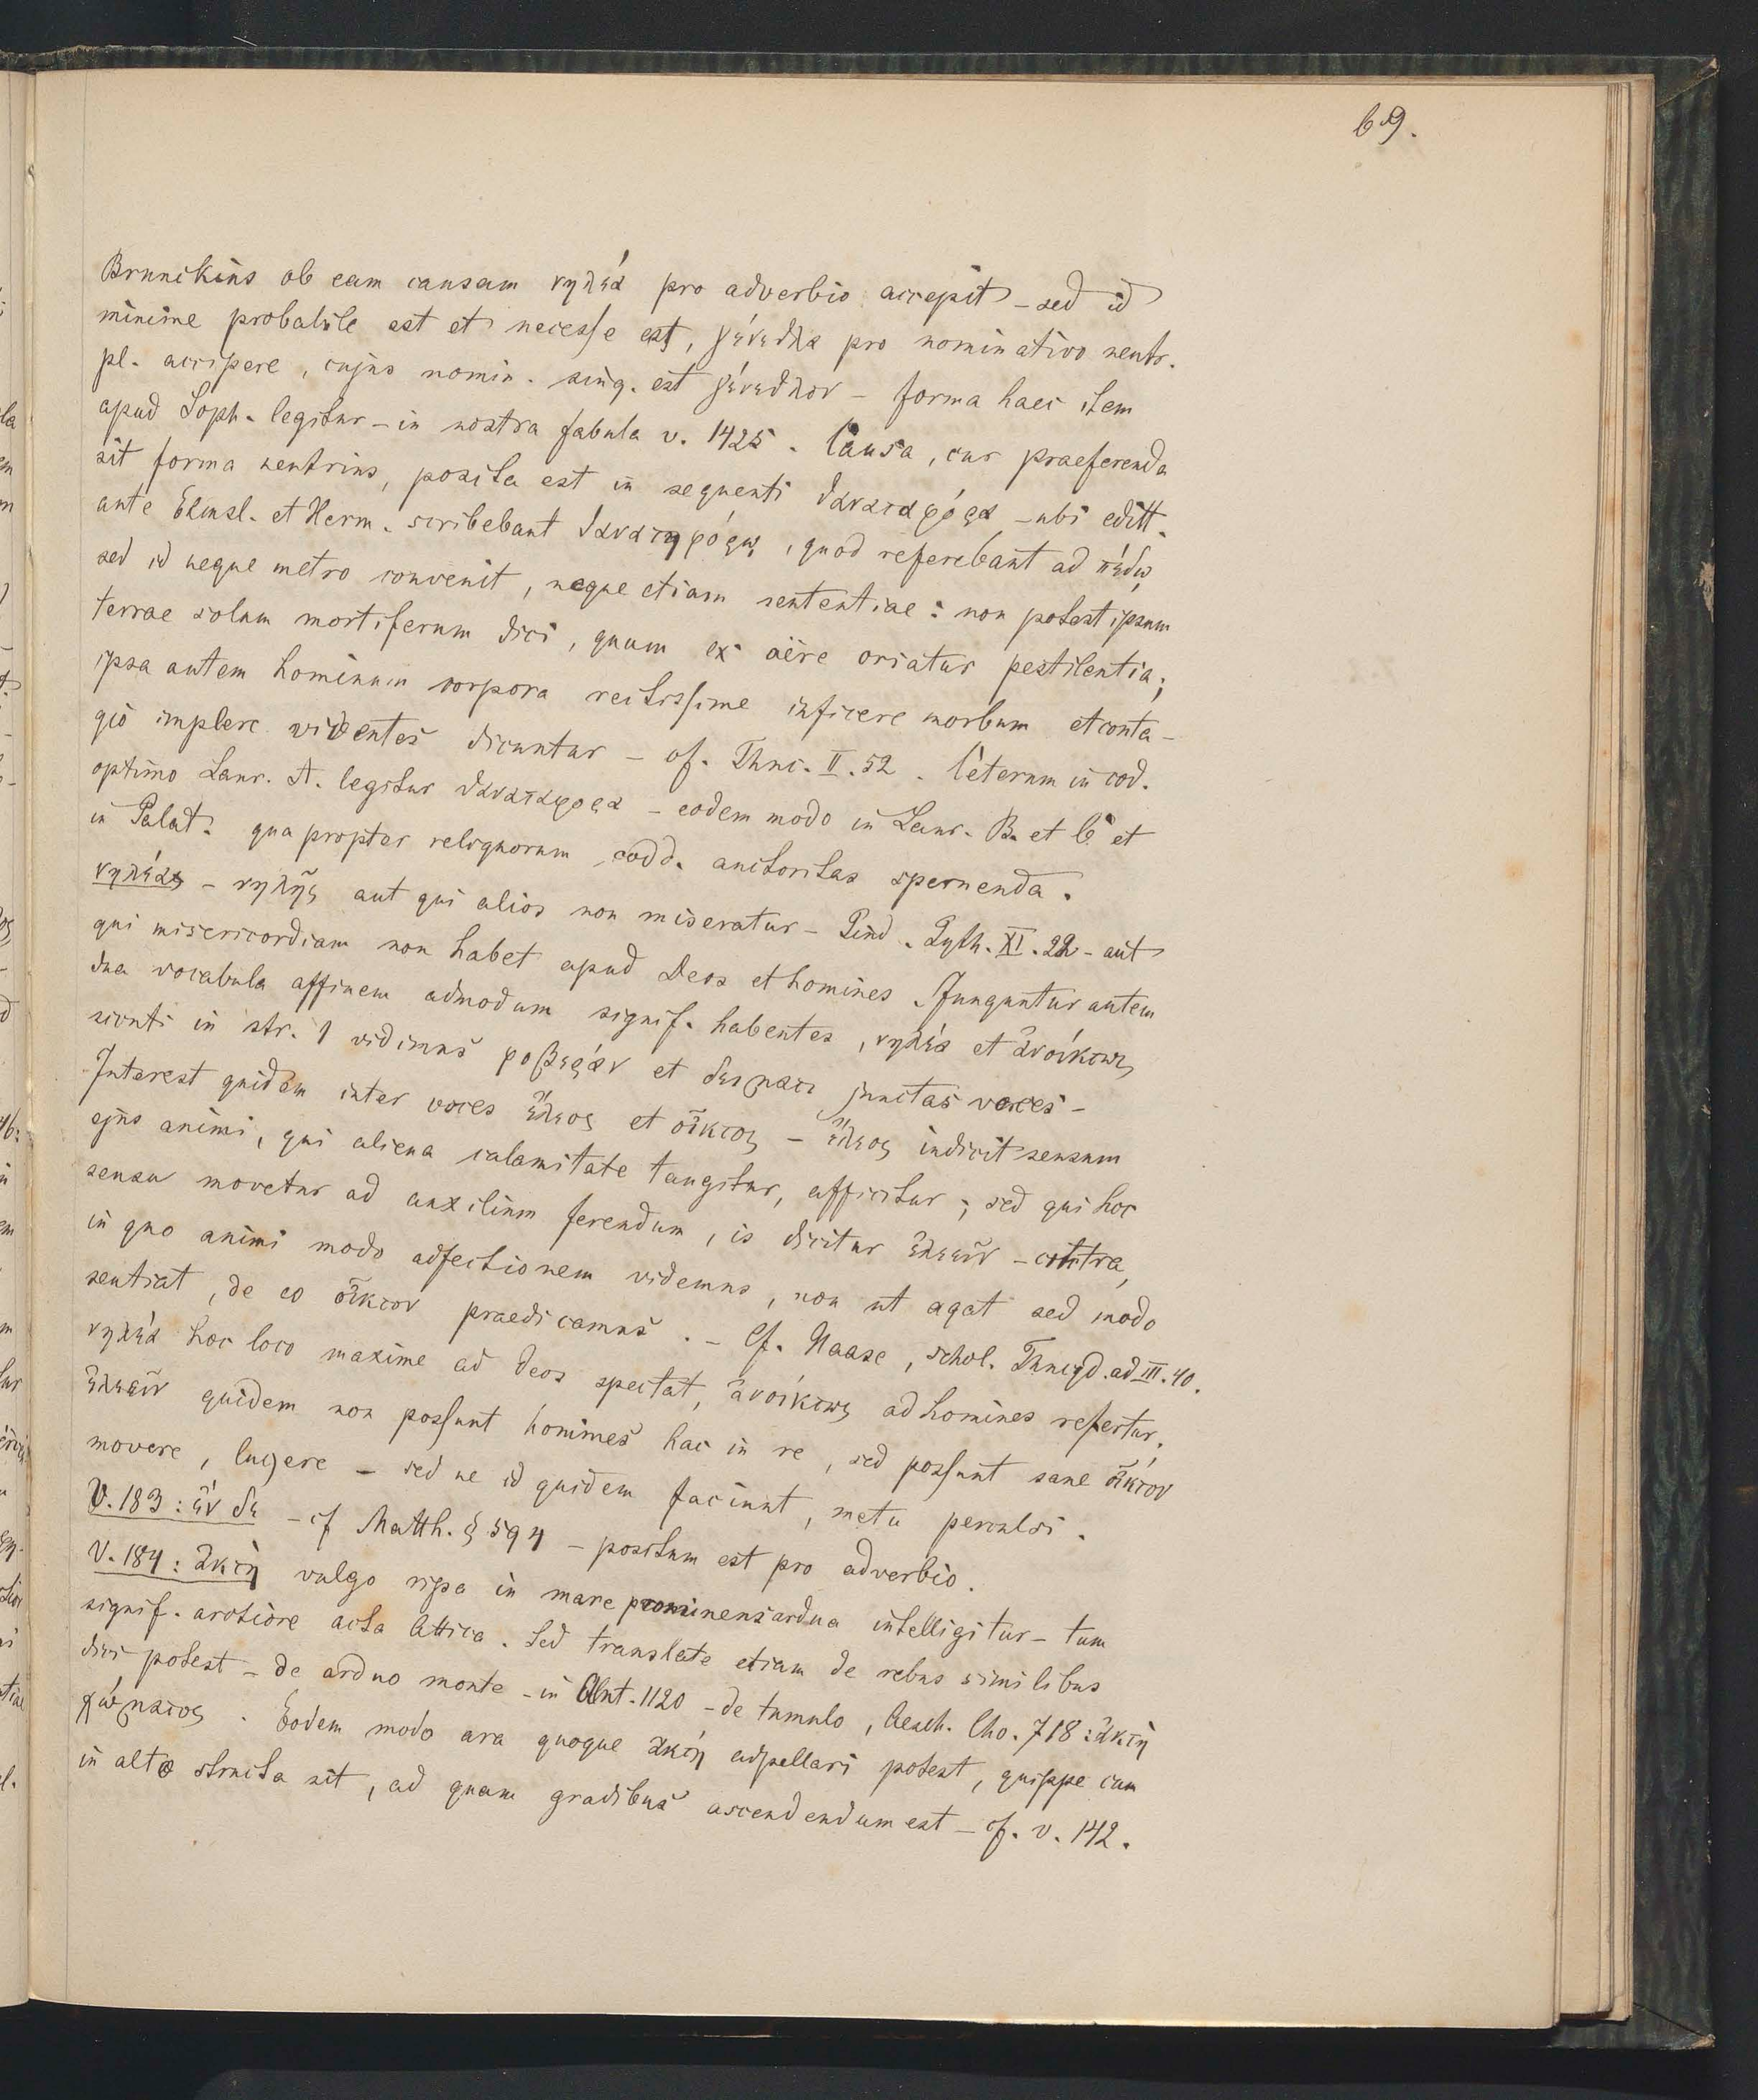 69.
Brunckius ob eam causam νηλέα pro adverbio accepit – sed id
minime probabile est et necesse est, γένεθλα pro nominativo neutr.
pl. accipere, cujus nomin. sing. est γένεθλον – forma haec item
apud Soph. legitur – in nostra fabula v. 1425. Causa, cur praeferenda
sit forma neutrius, posita est in sequenti θαναταφόρα – ubi editt.
ante Elmsl. et Herm. scribebant θανατηφόρῳ, quod referebant ad πέδῳ
sed id neque metro convenit, neque etiam sententiae: non potest ipsum
terrae solum mortiferum dici, quum ex aëre oriatur pestilentia;
ipsa autem hominum corpora rectissime inficere morbum et conta-
gio implere videntes dicuntur – cf. Thuc. II. 52. Ceterum in cod.
optimo Laur. A. legitur θαναταφορα – eodem modo in Laur. B. et C. et
in Palat. quapropter reliquorum codd. auctoritas spernenda.
νηλέα – νηλής aut qui alios non miseratur – Pind. Pyth. XI. 22 – aut
qui misericordiam non habet apud Deos et homines. Junguntur autem
dua vocabula affinem admodum signif. habentes, νηλέα et ἀνοίκτως
sicuti in str. 1 vidimus φοβεράν et δειματι junctas voces –
Interest quidem inter voces ἔλεος et οἶκτος – ἔλεος indicit sensum
ejus animi, qui aliena calamitate tangitur, afficitur; sed qui hoc
sensu movetur ad auxilium ferendum, is dicitur ἐλεεῖν – contra,
in quo animi modo adfectionem videmus, non ut agat sed modo
sentiat, de eo οἶκτον praedicamus. – Cf. Haase, schol. Thucyd. ad III. 40.
νηλέα hoc loco maxime ad Deos spectat, ἀνοίκτως ad homines refertur.
ἐλεεῖν quidem non possunt homines hac in re, sed possunt sane οἶκτον
movere, lugere – sed ne id quidem faciunt, metu perculsi.
V. 183: ἐν δε – cf Matth. § 594 – positum est pro adverbio.
V. 184: ἀκτὴ vulgo ripa in mare prominens ardua intelligitur – tum
signif. arctiore acta Attica. Sed translate etiam de rebus similibus
dici potest – de arduo monte – in Ant. 1120 – de tumulo, Aesch. Cho. 718: ἀκτὴ
χώματος. Eodem modo ara quoque ἀκτὴ adpellari potest, quippe cum
in alto structa sit, ad quam gradibus ascendendum est – cf. v. 142.